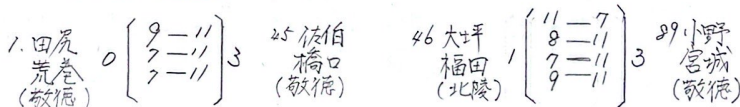 1. 田尻
荒巻
(敬徳)
0
9 — 11
7 — 11
7 — 11
3
45 佐伯
橋口
(敬徳)
46 大坪
福田
(北陵)
1
11 — 7
8 — 11
7 — 11
9 — 11
3
89 小野
宮城
(敬徳)